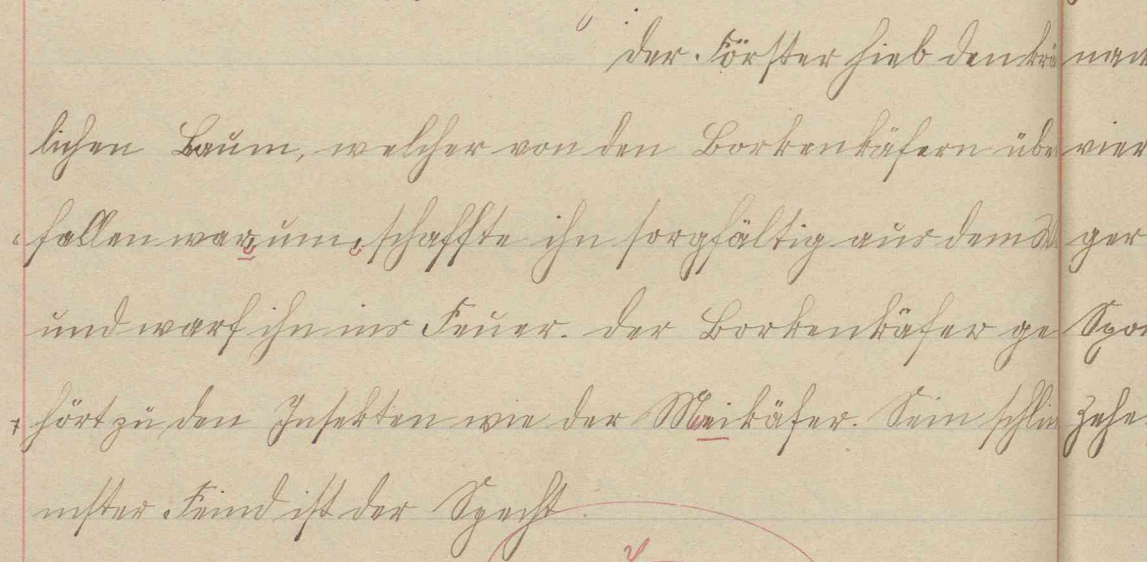 der Förster hieb den krä
lichen Baum, welcher von den Borkenkäfern übe
fallen war, um, schaffte ihn sorgfältig aus dem
und warf ihn ins Feuer. der Borkenkäfer ge
hört zu den Insekten wie der Meikäfer. Sein schlim
mster Feind ist der Specht
vier
ger
Spor
zehe